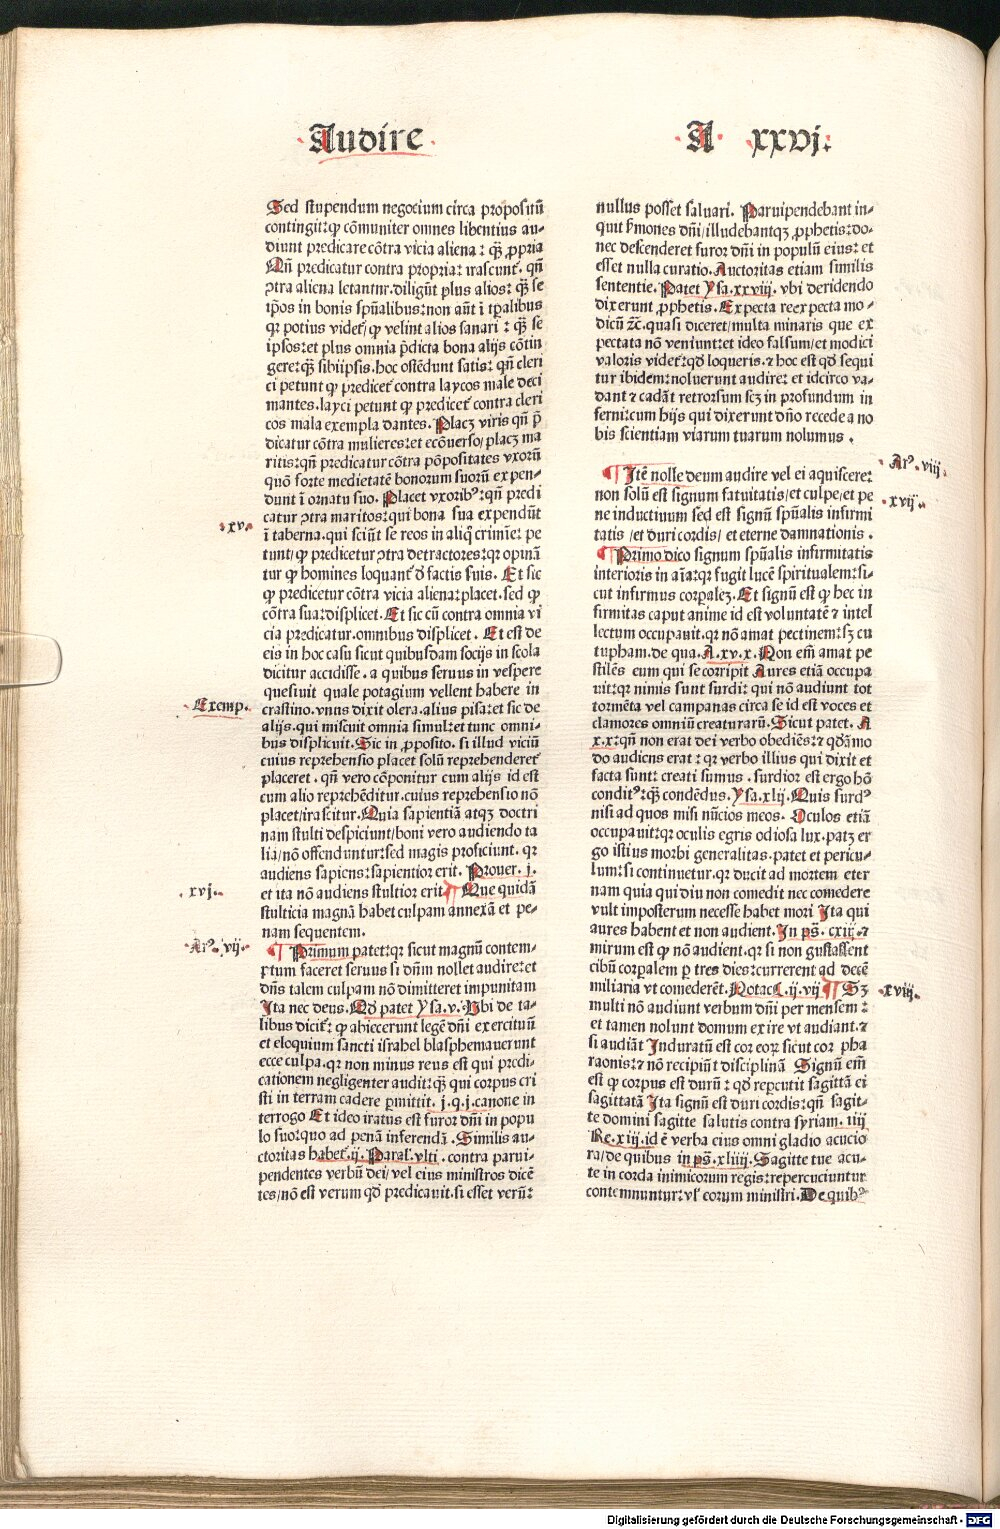 Audire
A xxvj.
Sed stupendum negocium circa propositū
contingit:ꝙ cōmuniter omnes libentius au-
diunt predicare cōtra vicia aliena: ꝙ̄ ꝓpria
Qn̄ predicatur contra propria: irascunt᷑. qn̄
ↄtra aliena letantur.diligūt plus alios: ꝙ̄ se
ip̄os in bonis spūalibus:non aūt ī tp̄alibus
qꝛ potius videt᷑/ꝙ velint alios sanari: ꝙ̄ se
ipsos:et plus omnia p̄dicta bona alijs cōtin
gere:ꝙ̄ sibiipsis.hoc ostēdunt satis: qn̄ cleri
ci petunt ꝙ predicet᷑ contra laycos male deci
mantes.layci petunt ꝙ predicet᷑ contra cleri
cos mala exempla dantes. Placꝫ viris qn̄ p̄
dicatur cōtra mulieres:et ecōuerso/placꝫ ma
ritis:qn̄ predicatur cōtra pōpositates vxorū
quō forte medietatē bonorum suorū expen-
dunt ī ornatu suo. Placet vxoribꝰ:qn̄ predi
catur ↄtra maritos:qui bona sua expendūt
ī taberna.qui sciūt se reos in aliq̄ crimīe: pe
tunt/ꝙ predicetur ↄtra detractores:qꝛ opinā
tur ꝙ homines loquant᷑ ꝺ̄ factis suis. Et sic
ꝙ predicetur cōtra vicia aliena:placet.sed ꝙ
cōtra sua:displicet. Et sic cū contra omnia vi
cia predicatur.omnibus displicet. Et est de
eis in hoc casu sicut quibusdam socijs in scola
dicitur accidisse.a quibus seruus in vespere
quesiuit quale potagium vellent habere in
crastino.vnus dixit olera.alius pisa:et sic de
alijs.qui miscuit omnia simul:et tunc omni-
bus displicuit. Sic in ꝓposito.si illud viciū
cuius reprehensio placet solū reprehenderet᷑
placeret. qn̄ vero cōponitur cum alijs id est
cum alio reprehēditur.cuius reprehensio nō
placet/irascitur. Quia sapientiā atqꝫ doctri
nam stulti despiciunt/boni vero audiendo ta
lia/nō offenduntur:sed magis proficiunt. qꝛ
audiens sapiens:sapientior erit. Prouer. j.
et ita nō audiens stultior erit. ¶ Que quidā
stulticia magnā habet culpam annexā et pe-
nam sequentem.
¶ Primum patet:qꝛ sicut magnū contem-
ptum faceret seruus si dn̄m nollet audire:et
dn̄s talem culpam nō dimitteret impunitam
Ita nec deus. Qd̄ patet Ysa.v. Vbi de ta-
libus dicit᷑: ꝙ abiecerunt legē dn̄i exercituū
et eloquium sancti israhel blasphemauerunt
ecce culpa.qꝛ non minus reus est qui predi-
cationem negligenter audit:ꝙ̄ qui corpus cri
sti in terram cadere ꝑmittit. j.q.j.canone in
terrogo Et ideo iratus est furor dn̄i in popu
lo suo:quo ad penā inferendā. Similis au-
ctoritas habet᷑.ij. Paral᷑.vlti. contra parui-
pendentes verbū dei/vel eius ministros dicē
tes/nō est verum qd̄ predicauit.si esset verū:
nullus posset saluari. Paruipendebant in-
quit s̄mones dn̄i/illudebantqꝫ ꝓphetis:do-
nec descenderet furor dn̄i in populū eius: et
esset nulla curatio. Auctoritas etiam similis
sententie. Patet Ysa.xxviij. vbi deridendo
dixerunt ꝓphetis. Expecta reexpecta mo-
dicū ⁊c̄.quasi diceret/multa minaris que ex
pectata nō veniunt:et ideo falsum/et modici
valoris videt᷑:qd̄ loqueris.⁊ hoc est qd̄ sequi
tur ibidem:noluerunt audire: et idcirco va-
dant ⁊ cadāt retrorsum scꝫ in profundum in
ferni:cum hijs qui dixerunt dn̄o recede a no
bis scientiam viarum tuarum nolumus.
¶ Itē nolle deum audire vel ei aquiscere:
non solū est signum fatuitatis/et culpe/et pe
ne inductiuum sed est signū spūalis infirmi
tatis /et duri cordis/ et eterne damnationis.
¶ Primo dico signum spūalis infirmitatis
interioris in aīa:qꝛ fugit lucē spiritualem:si-
cut infirmus corpaleꝫ. Et signū est ꝙ hec in
firmitas caput anime id est voluntatē ⁊ intel
lectum occupauit.qꝛ nō amat pectinem:sꝫ cu
tupham.de qua. A.xv.x. Non em̄ amat pe
stilēs eum qui se corripit Aures etiā occupa
uit:qꝛ nimis sunt surdi: qui nō audiunt tot
tormēta vel campanas circa se id est voces et
clamores omniū creaturarū. Sicut patet. A
x.x:qn̄ non erat dei verbo obediēs:⁊ qd̄āmo
do audiens erat: qꝛ verbo illius qui dixit et
facta sunt: creati sumus. surdior est ergo hō
conditꝰ:ꝙ̄ condēdus. Ysa.xlij. Quis surdꝰ
nisi ad quos misi nūcios meos. Oculos etiā
occupauit:qꝛ oculis egris odiosa lux.patꝫ er
go istius morbi generalitas.patet et pericu-
lum:si continuetur.qꝛ ducit ad mortem eter
nam quia qui diu non comedit nec comedere
vult imposterum necesse habet mori Ita qui
aures habent et non audient. In pš. cxiij.⁊
mirum est ꝙ nō audient.qꝛ si non gustassent
cibū corꝑalem ꝑ tres dies:currerent ad decē
miliaria vt comederēt. Nota c.ij.vij ¶ Sꝫ
multi nō audiunt verbum dn̄i per mensem:
et tamen nolunt domum exire vt audiant.⁊
si audiāt Induratū est cor eoꝝ sicut cor pha
raonis:⁊ nō recipiūt disciplinā Signū em̄
est ꝙ corpus est durū: qd̄ repcutit sagittā ei
sagittatā Ita signū est duri cordis:qn̄ sagit-
te domini sagitte salutis contra syriam. iiij
Re.xiij.id ē verba eius omni gladio acucio
ra/de quibus in pš.xliiij. Sagitte tue acu-
te in corda inimicorum regis:repercuciuntur
contemnuntur:vl᷑ eorum ministri. De quibꝰ
.xv.
Exemp.
.xvj.
Arꝰ. vij.
Arꝰ. viij.
.xvij.
.xviij.
Digitalisierung gefördert durch die Deutsche Forschungsgemeinschaft - DFG